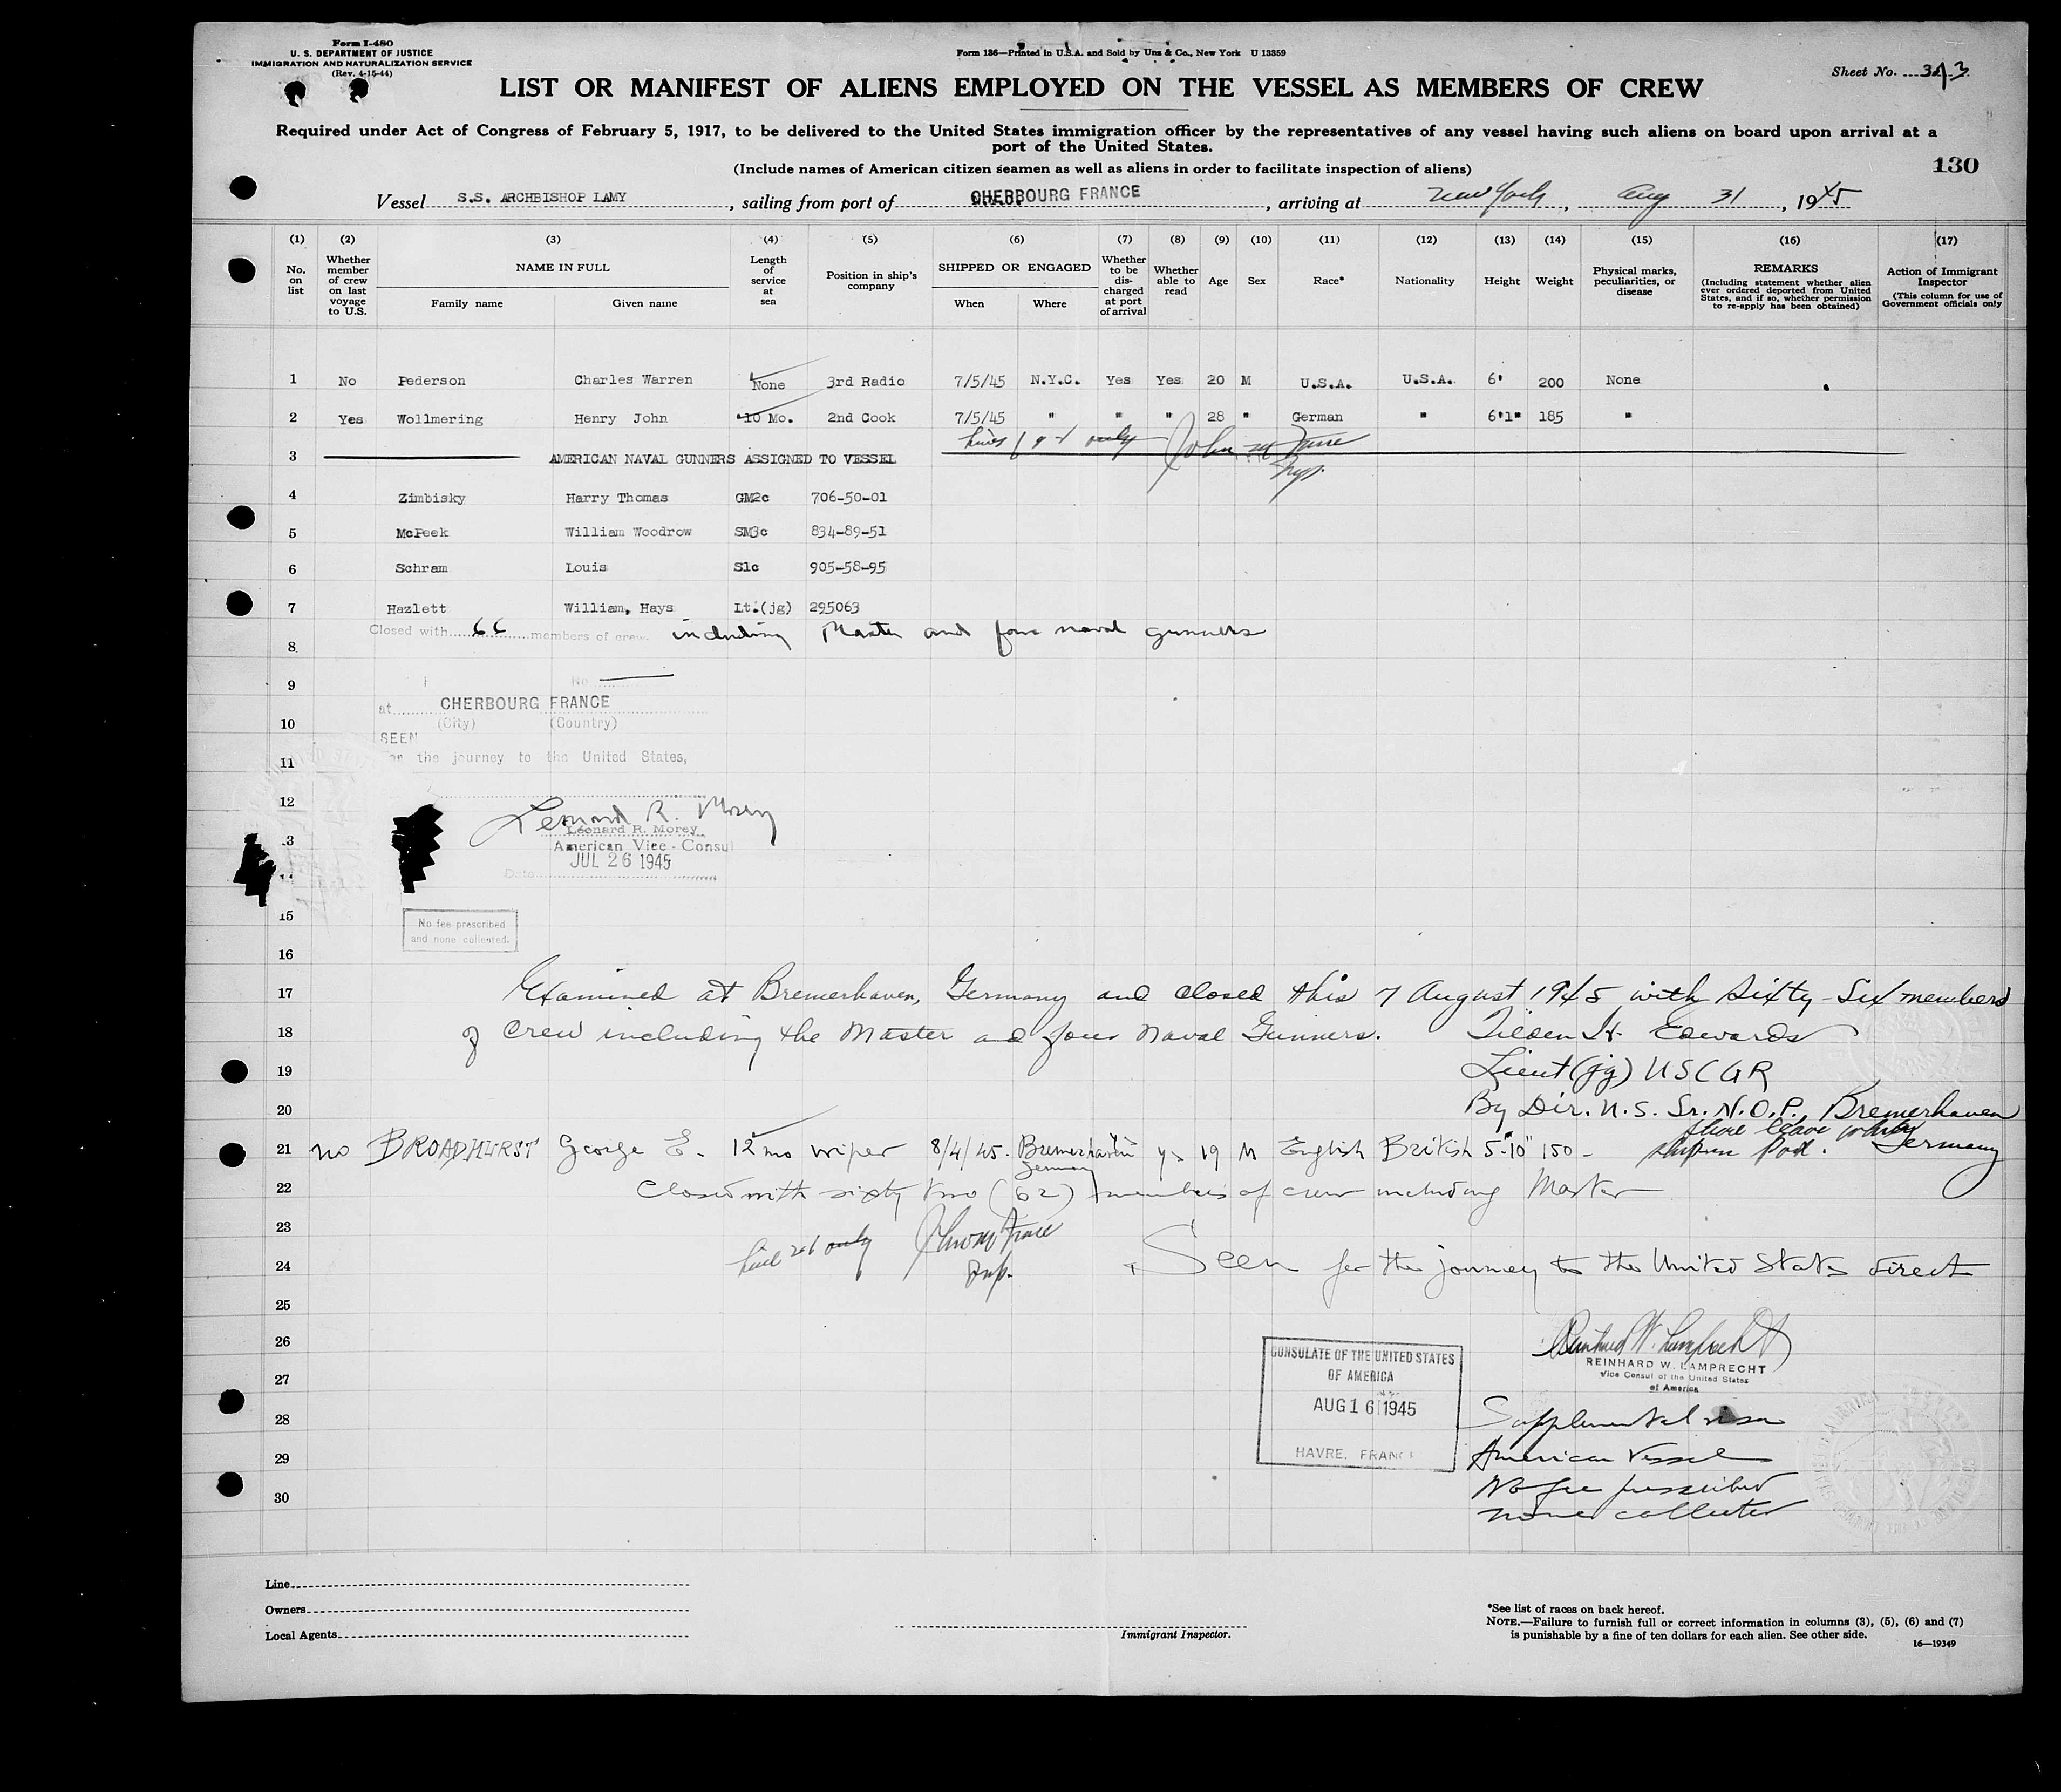 Form I-480
U. S. DEPARTMENT OF JUSTICE
IMMIGRATION AND NATURALIZATION SERVICE
(Rev. 4-15-44)
Form 136—Printed in U.S.A. and Sold by Unz & Co., New York U 13359
Sheet No.
LIST OR MANIFEST OF ALIENS EMPLOYED ON THE VESSEL AS MEMBERS OF CREW
Required under Act of Congress of February 5, 1917, to be delivered to the United States immigration officer by the representatives of any vessel having such aliens on board upon arrival at a
port of the United States.
(Include names of American citizen seamen as well as aliens in order to facilitate inspection of aliens)
130
Vessel S.S. ARCHBISHOP LAMY, sailing from port of CHERBOURG FRANCE, arriving at New York, Aug 31, 1945
(1) (2) (3) (4) (5) (6) (7) (8) (9) (10) (11) (12) (13) (14) (15) (16) (17)
No. on list
Whether member of crew on last voyage to U.S.
NAME IN FULL
Family name Given name
Length of service at sea
Position in ship's company
SHIPPED OR ENGAGED
When Where
Whether to be discharged at port of arrival
Whether able to read
Age
Sex
Race*
Nationality
Height
Weight
Physical marks, peculiarities, or disease
REMARKS
(Including statement whether alien ever ordered deported from United States, and if so, whether permission to re-apply has been obtained)
Action of Immigrant Inspector
(This column for use of Government officials only
1 No Pederson Charles Warren None 3rd Radio 7/5/45 N.Y.C. Yes Yes 20 M U.S.A. U.S.A. 6' 200 None
2 Yes Wollmering Henry John 10 Mo. 2nd Cook 7/5/45 " " " 28 " German " 6'1" 185 "
lines 1 & 2 only
Insp.
3 AMERICAN NAVAL GUNNERS ASSIGNED TO VESSEL
4 Zimbisky Harry Thomas GM2c 706-50-01
5 McPeek William Woodrow SM3c 834-89-51
6 Schram Louis S1c 905-58-95
7 Hazlett William, Hays Lt.(jg) 295063
Closed with 66 members of crew including Master and four naval gunners
8
9 No
at CHERBOURG FRANCE
10 (City) (Country)
SEEN
11 the journey to the United States,
12
Leonard R. Morey
Leonard R. Morey
American Vice-Consul
JUL 26 1945
Date
15
No fee prescribed
and none collected.
16
17 Examined at Bremerhaven, Germany and closed this 7 August 1945 with Sixty-Six members
18 of Crew including the Master and four Naval Gunners. Tilden H. Edwards
19 Lieut(jg) USCGR
20 By Dir. U.S. Sr. N.O.P., Bremerhaven
Germany
shore leave while
ship in Port.
21 no BROADHURST George E. 12 mo wiper 8/4/45 Bremerhaven Germany 19 M English British 5'-10" 150 -
22 Closed with sixty two (62) members of crew including Master
23
line 21 only
Insp.
24 Seen for the journey to the United States direct
25
26
REINHARD W. LAMPRECHT
Vice Consul of the United States
of America
27
CONSULATE OF THE UNITED STATES
OF AMERICA
AUG 16 1945
HAVRE, FRANCE
28 Supplemental visa
29 American Vessel
30 No fee prescribed
none collected
Line
Owners
Local Agents
Immigrant Inspector.
*See list of races on back hereof.
NOTE.—Failure to furnish full or correct information in columns (3), (5), (6) and (7)
is punishable by a fine of ten dollars for each alien. See other side.
16—19349